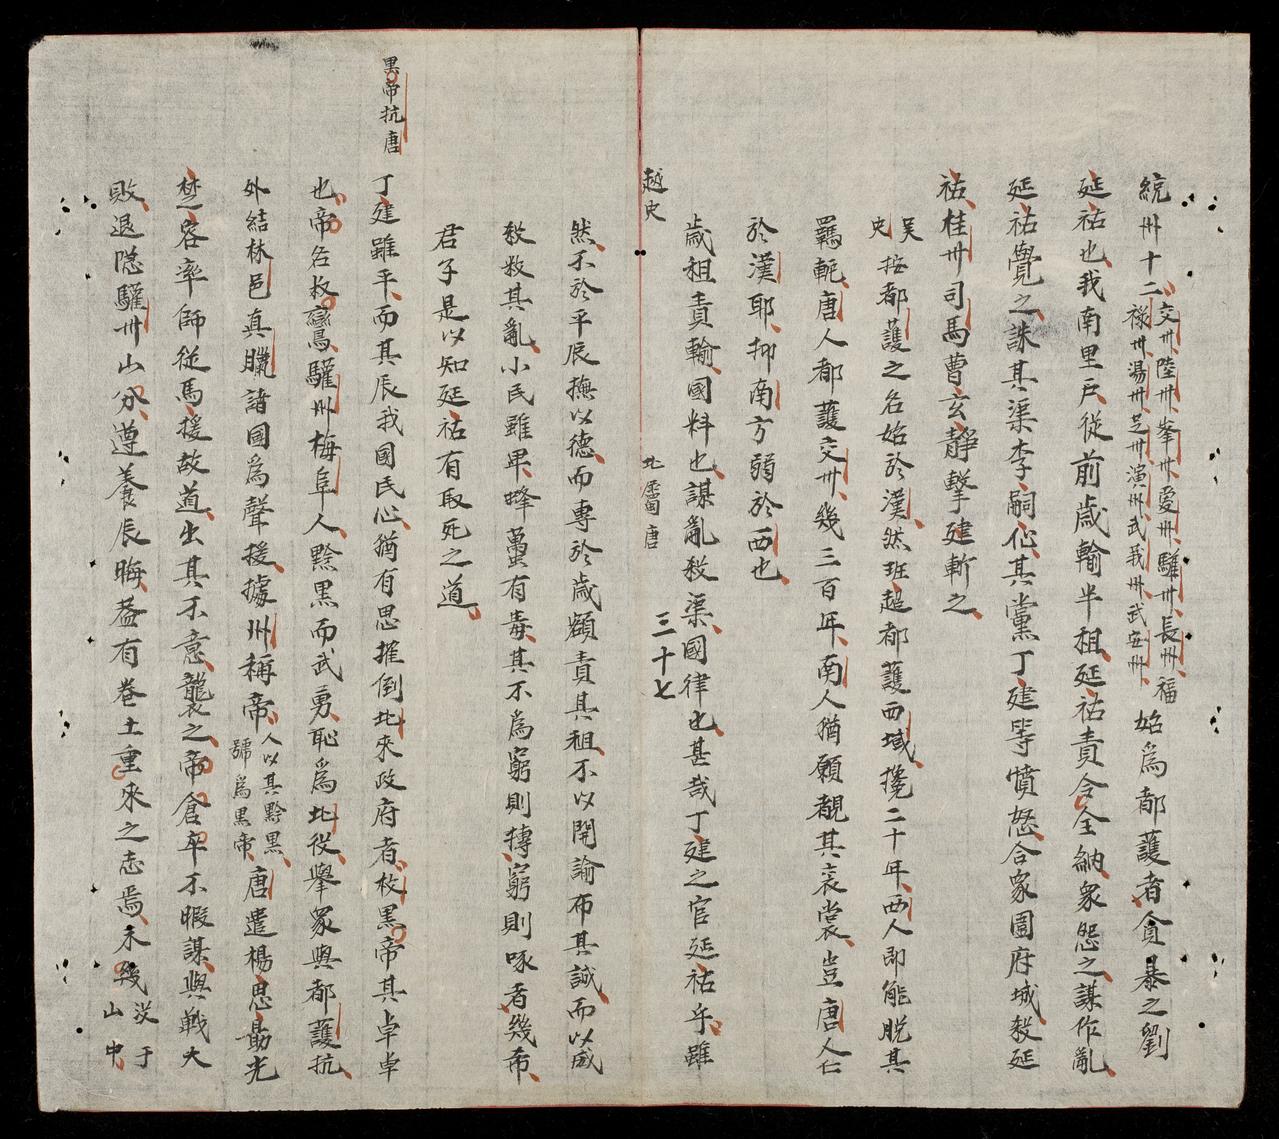 統州十二交州陸州峯州愛州驩州長州福祿州湯州芝州演州武峩州武安州始爲都護者貪暴之劉
延祐也我南里戶從前歲輸半租延祐責令全納衆怨之謀作亂
延祐覺之誅其渠李嗣仙其黨丁建等憤怒合衆圍府城殺延
祐桂州司馬曹玄靜擊建斬之
吴史按都護之名始於漢然班超都護西域攙二十年西人即能脫其
羈軛唐人都護交州幾三百年南人猶願覩其衮裳豈唐人仁
於漢耶抑南方弱於西也
歲租責輸國料也謀亂殺渠國律也甚哉丁建之官延祐乎雖
越史
北屬唐
三十七
然不於平辰撫以德而專於歲額責其租不以開諭布其誠而以威
殺救其亂小民雖畢蜂蠆有毒其不爲窮則摶窮則啄者幾希
君子是以知延祐有取死之道
黑帝抗唐
丁建雖平而其辰我國民心猶有思摧倒北來政府者枚黑帝其卓卓
也帝名枚鸞驩州梅阜人黔黑而武勇恥爲北役舉眾與都護抗
外結林邑真臘諸國爲聲援據州稱帝人以其黔黑號爲黑帝唐遣楊思勗光
楚客率師從馬援故道出其不意襲之帝倉卒不暇謀與戰大
敗退隱驩州山分遵養辰晦葢有卷土重來之志焉未幾沒于山中